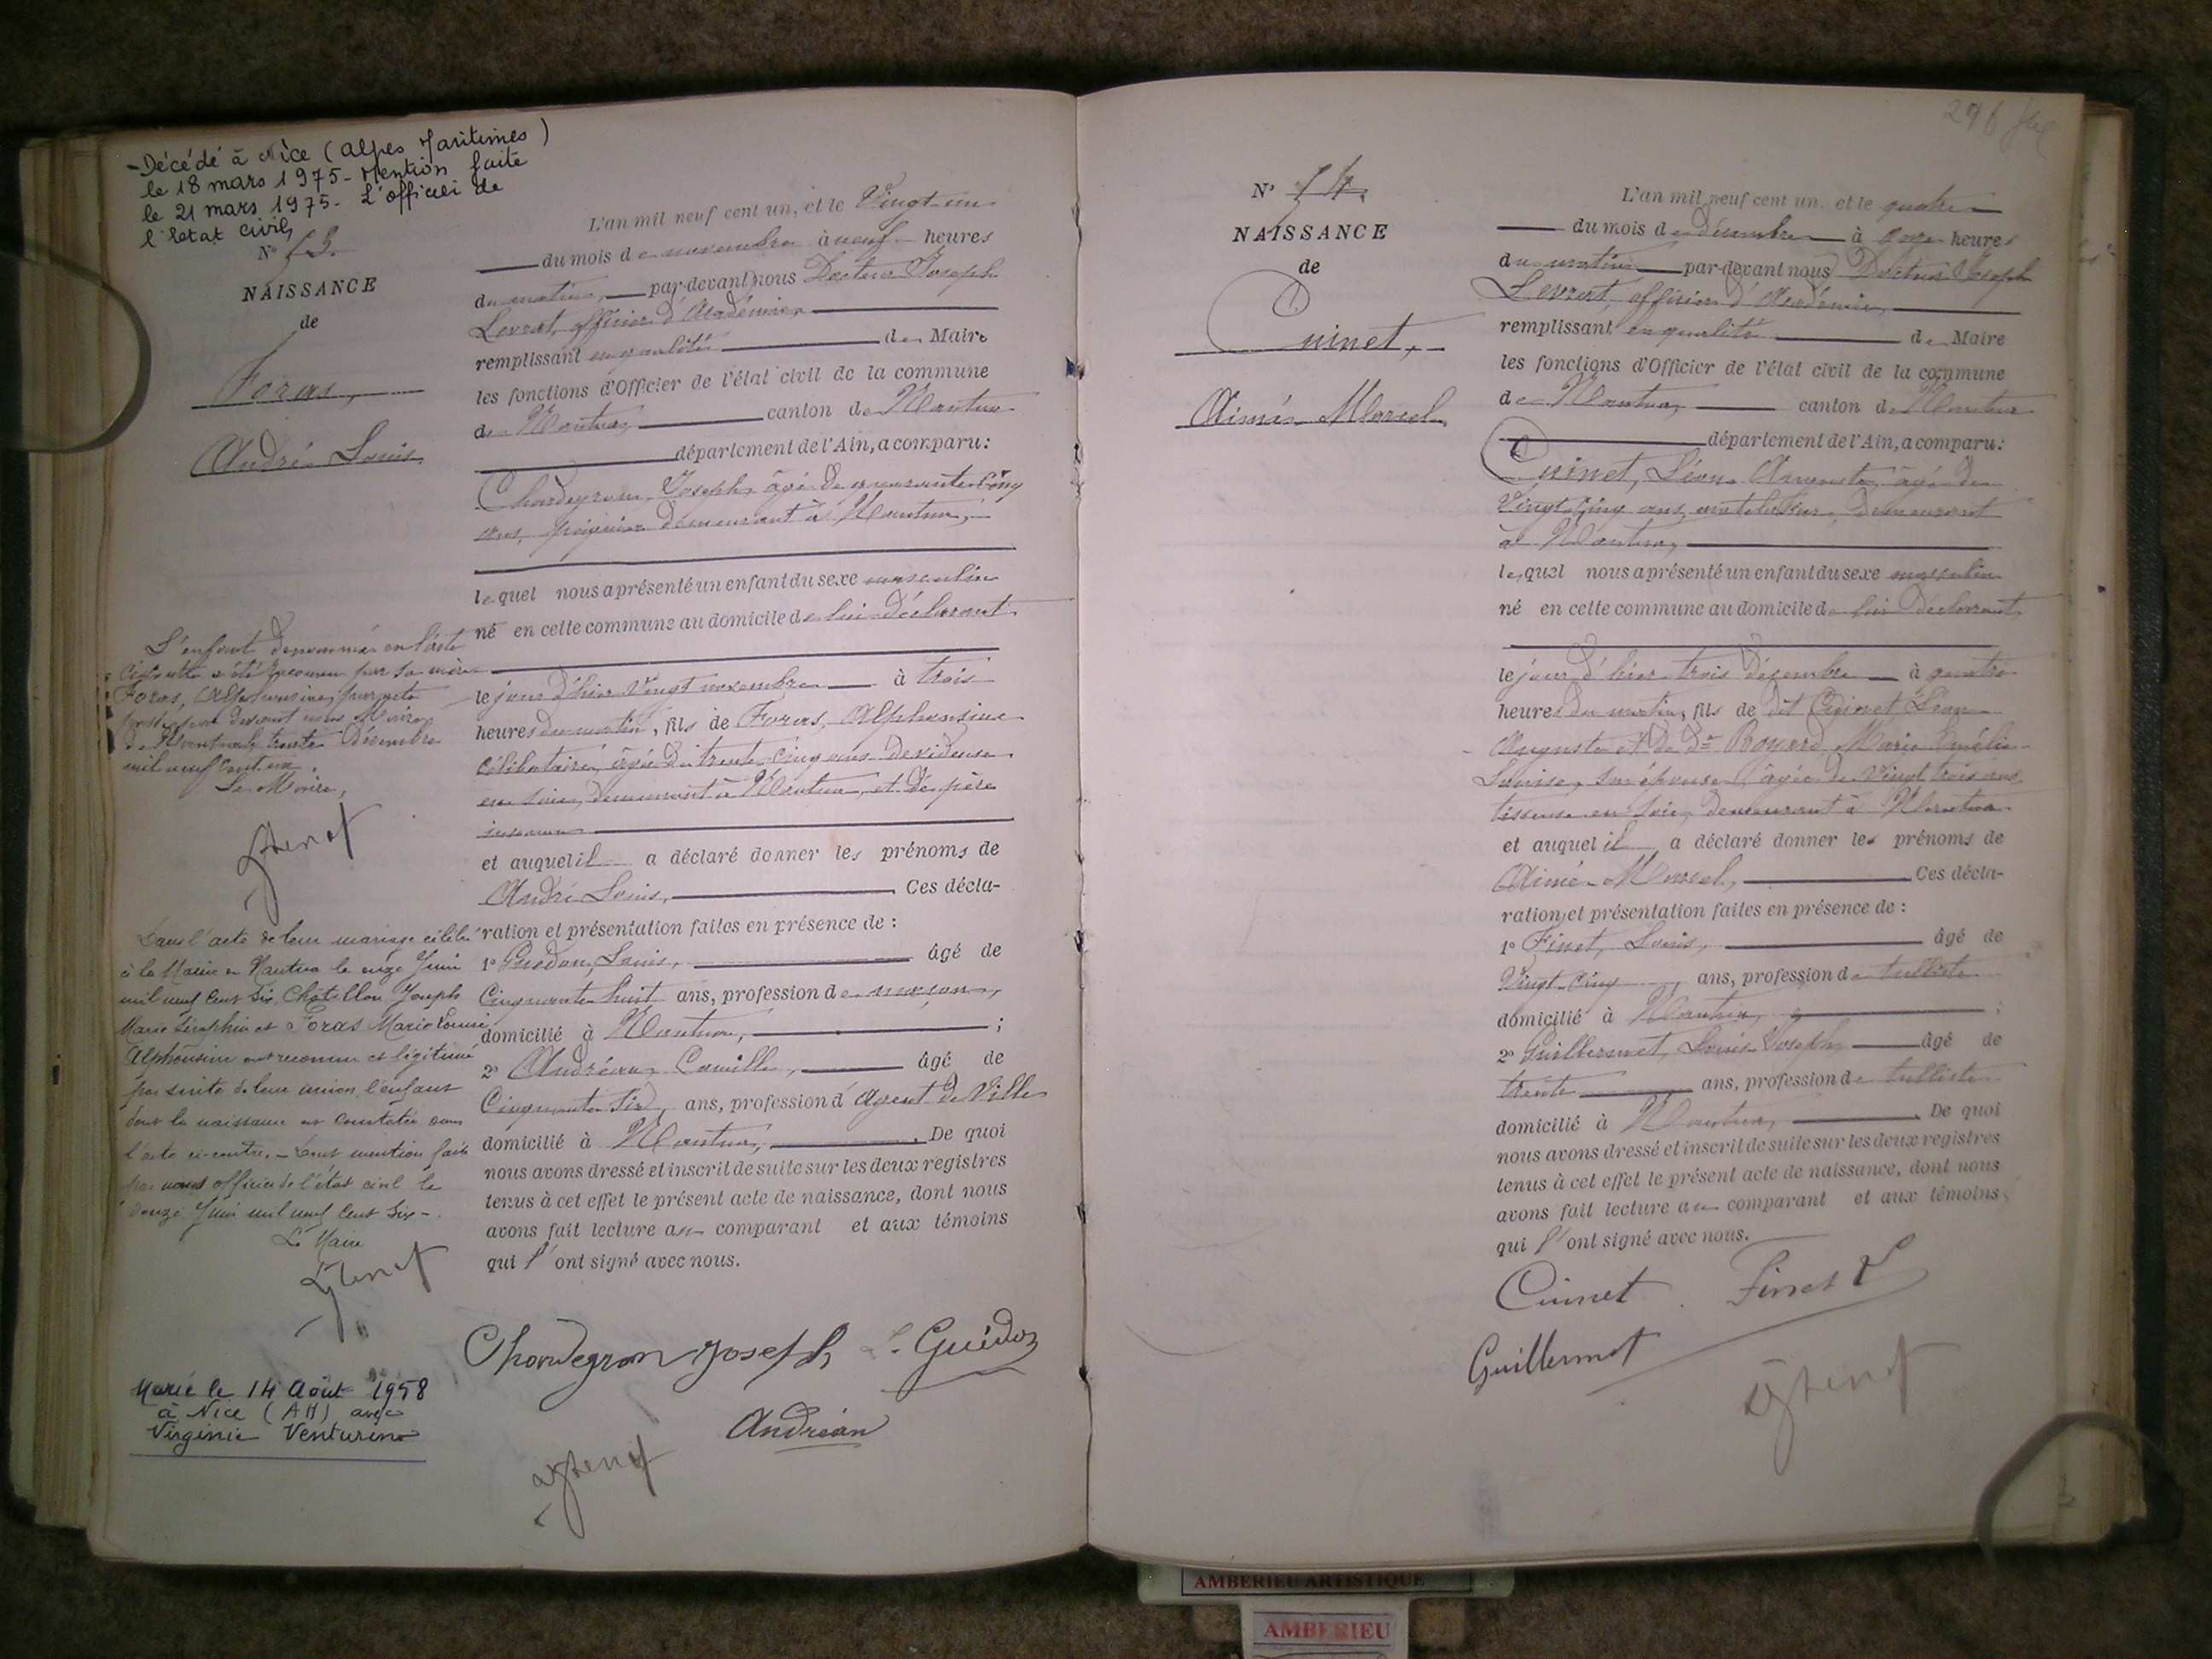 - Décédé à Nice (Alpes Maritimes)
le 18 mars 1975 - Mention faite
le 21 mars 1975 - L'officier de
l'Etat civil,
N° 53.
NAISSANCE
de
Foras,
André Louis
L'enfant dénommé en l'acte
ci-contre a été reconnu par sa mère
Foras, Alphonsine, par acte
devant nous Maire
de Nantua le trente Décembre
mil neuf cent un.
Le Maire,
Dans l'acte de leur mariage célébré
à la Mairie de Nantua le onze Juin
mil neuf cent six, Châtillon Joseph
Marie Séraphin et Foras Marie Louise
Alphonsine ont reconnu et légitimé
par suite de leur union, l'enfant
dont la naissance est constatée dans
l'acte ci-contre. - Dont mention faite
par nous officier de l'état civil le
douze Juin mil neuf cent six -.
Le Maire
Marié le 14 Août 1958
à Nice (AM) avec
Virginie Venturino
L'an mil neuf cent un, et le Vingt-un
du mois de novembre à neuf heures
du matin, par-devant nous Docteur Joseph
Levrat, officier d'Académie,
remplissant en qualité de Maire
les fonctions d'Officier de l'état civil de la commune
de Nantua, canton de Nantua
département de l'Ain, a comparu:
Chardeyron, Joseph, âgé de quarante-cinq
ans, peignier demeurant à Nantua,
lequel nous a présenté un enfant du sexe masculin
né en cette commune au domicile de lui déclarant
le jour d'hier Vingt novembre à trois
heures du matin, fils de Foras, Alphonsine
célibataire, âgée de trente-cinq ans, dévideuse
en soie, demeurant à Nantua, et de père
inconnu
et auquel il a déclaré donner les prénoms de
André Louis, Ces décla-
ration et présentation faites en présence de :
1° Guédon, Louis, âgé de
Cinquante huit ans, profession de maçon,
domicilié à Nantua, ;
2° Andréan, Camille, âgé de
Cinquante six, ans, profession d'Agent de Ville
domicilié à Nantua, . De quoi
nous avons dressé et inscrit de suite sur les deux registres
tenus à cet effet le présent acte de naissance, dont nous
avons fait lecture au comparant et aux témoins
qui l'ont signé avec nous.
Chardeyron Joseph L. Guédon
Andréan
296
N° 54.
NAISSANCE
de
Cuinet,
Aimé Marcel
L'an mil neuf cent un, et le quatre
du mois de décembre à onze heures
du matin par-devant nous Docteur Joseph
Levrat, officier d'Académie,
remplissant en qualité de Maire
les fonctions d'Officier de l'état civil de la commune
de Nantua, canton de Nantua
département de l'Ain, a comparu:
Cuinet, Léon Auguste, âgé de
Vingt-cinq ans, matelassier, demeurant
à Nantua,
lequel nous a présenté un enfant du sexe masculin
né en cette commune au domicile de lui déclarant,
le jour d'hier trois décembre à quatre
heures du matin, fils de dit Cuinet Léon
Auguste et de De Marie Emélie
Louise, son épouse, âgée de Vingt trois ans
tisseuse en soie, demeurant à Nantua
et auquel il a déclaré donner les prénoms de
Aimé Marcel, Ces décla-
ration et présentation faites en présence de :
1° Finet, Louis, âgé de
Vingt-cinq ans, profession de tulliste
domicilié à Nantua, ;
2° Guillermet, Louis Joseph âgé de
trente ans, profession de tulliste
domicilié à Nantua, . De quoi
nous avons dressé et inscrit de suite sur les deux registres
tenus à cet effet le présent acte de naissance, dont nous
avons fait lecture au comparant et aux témoins
qui l'ont signé avec nous.
Cuinet Finet L
Guillermet
AMBERIEU ARTISTIQUE
AMBERIEU